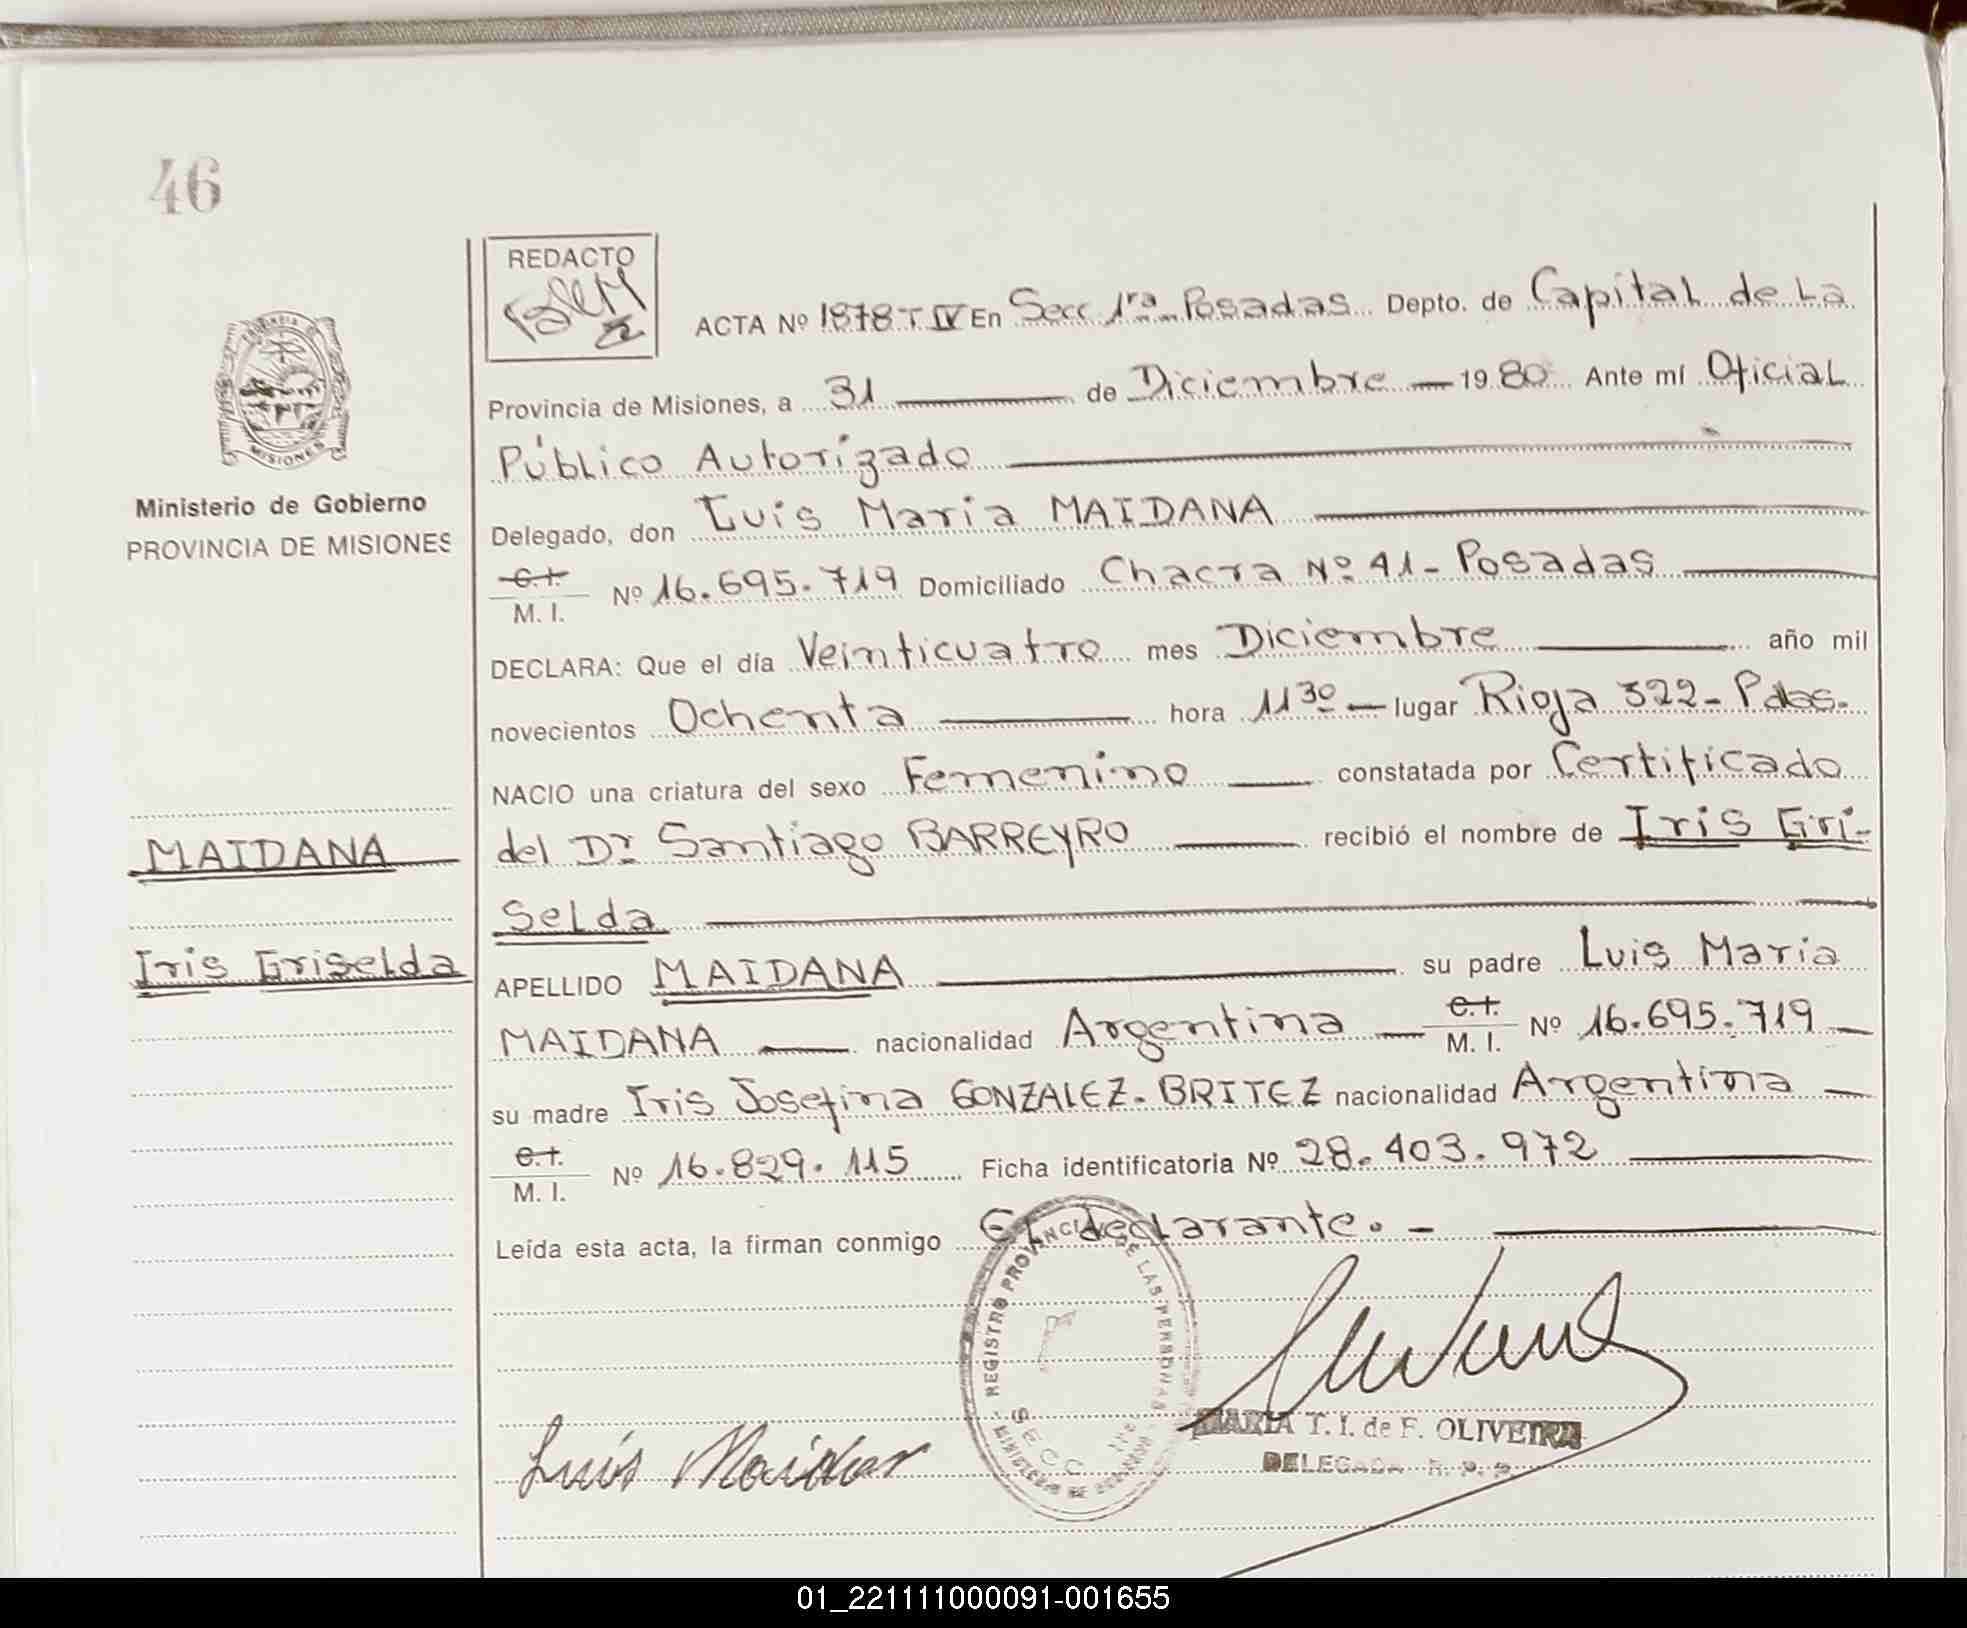 46
REDACTO
ACTA Nº 1878 T IV En Secc 1ra Posadas Depto. de Capital de La
Provincia de Misiones, a 31 de Diciembre 1980 Ante mí Oficial
Público Autorizado
Ministerio de Gobierno
PROVINCIA DE MISIONES
Delegado, don Luis Maria MAIDANA
C.I. M. I. Nº 16.695.719 Domiciliado Chacra Nº 41 - Posadas
DECLARA: Que el día Veinticuatro mes Diciembre año mil
novecientos Ochenta hora 11 30 lugar Rioja 322 - Pdas.
NACIO una criatura del sexo Femenino constatada por Certificado
MAIDANA
del Dr Santiago BARREYRO recibió el nombre de Iris Gri-
Selda
Iris Griselda
APELLIDO MAIDANA su padre Luis Maria
MAIDANA nacionalidad Argentina C.I. M. I. Nº 16.695.719
su madre Iris Josefina GONZALEZ - BRITEZ nacionalidad Argentina
C.I. M. I. Nº 16.829.115 Ficha identificatoria Nº 28.403.972
Leída esta acta, la firman conmigo El declarante. -
REGISTRO PROVINCIAL DE LAS PERSONAS
SECC
Luis Maidana
MARIA T. I. de F. OLIVEIRA
DELEGADA R. P. P.
MISIONES
01_221111000091-001655